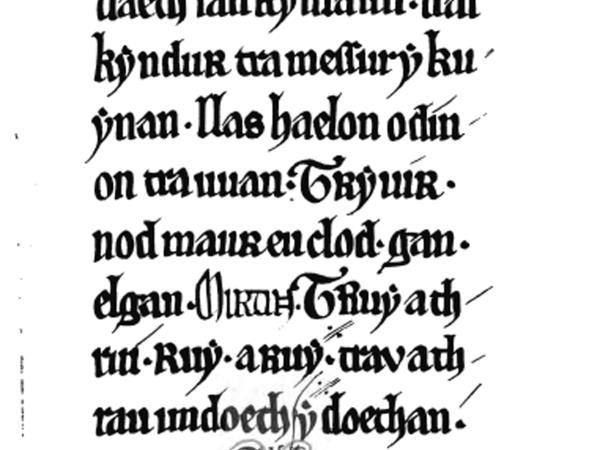 kyndur tra messur y ku
ynan. llas haelon o din
on tra uuan. Tryuir.
nod maur eu clod. gan.
elgan. Mirtin. Truy ath
rui. Ruy. a Ruy. trav ath
rau imdoeth y doethan.